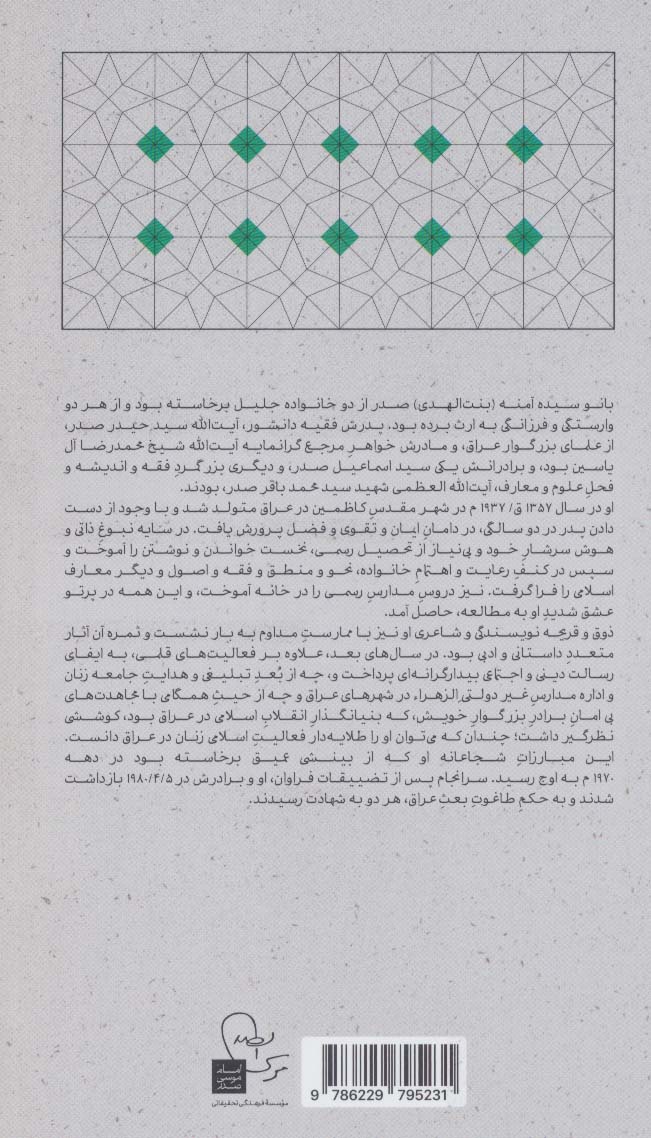 بانو سیده آمنه (بنت‌الهدی) صدر از دو خانواده جلیل برخاسته بود و از هر دو
وارستگی و فرزانگی به ارث برده بود. پدرش فقیه دانشور، آیت‌الله سید حیدر صدر،
از علمای بزرگوار عراق، و مادرش خواهرِ مرجع گرانمایه آیت‌الله شیخ محمدرضا آل
یاسین بود، و برادرانش یکی سید اسماعیل صدر، و دیگری بزرگمردِ فقه و اندیشه و
فحلِ علوم و معارف، آیت‌الله العظمی شهید سید محمد باقر صدر، بودند.
او در سال ۱۳۵۷ ق/ ۱۹۳۷ م در شهر مقدس کاظمین در عراق متولد شد و با وجود از دست
دادن پدر در دو سالگی، در دامانِ ایمان و تقوی و فضل پرورش یافت. در سایه نبوغِ ذاتی و
هوش سرشارِ خود و بی‌نیاز از تحصیل رسمی، نخست خواندن و نوشتن را آموخت و
سپس در کنفِ رعایت و اهتمامِ خانواده، نحو و منطق و فقه و اصول و دیگر معارف
اسلامی را فرا گرفت. نیز دروسِ مدارسِ رسمی را در خانه آموخت، و این همه در پرتو
عشق شدیدِ او به مطالعه، حاصل آمد.
ذوق و قریحه نویسندگی و شاعری او نیز با ممارستِ مداوم به بار نشست و ثمره آن آثار
متعددِ داستانی و ادبی بود. در سال‌های بعد، علاوه بر فعالیت‌های قلمی، به ایفای
رسالت دینی و اجتماعی بیدارگرانه‌ای پرداخت و، چه از بُعدِ تبلیغی و هدایتِ جامعه زنان
و اداره مدارسِ غیر دولتی الزهراء در شهرهای عراق و چه از حیثِ همگامی با مجاهدت‌های
بی امانِ برادرِ بزرگوارِ خویش، که بنیانگذارِ انقلابِ اسلامی در عراق بود، کوششی
نظرگیر داشت؛ چندان که می‌توان او را طلایه‌دار فعالیتِ اسلامی زنان در عراق دانست.
این مبارزاتِ شجاعانه او که از بینشی عمیق برخاسته بود در دهه
۱۹۷۰ م به اوج رسید. سرانجام پس از تضییقات فراوان، او و برادرش در ۱۹۸۰/۴/۵ بازداشت
شدند و به حکمِ طاغوتِ بعثِ عراق، هر دو به شهادت رسیدند.
امام
موسی
صدر
مؤسسهٔ فرهنگی تحقیقاتی
9 786229 795231